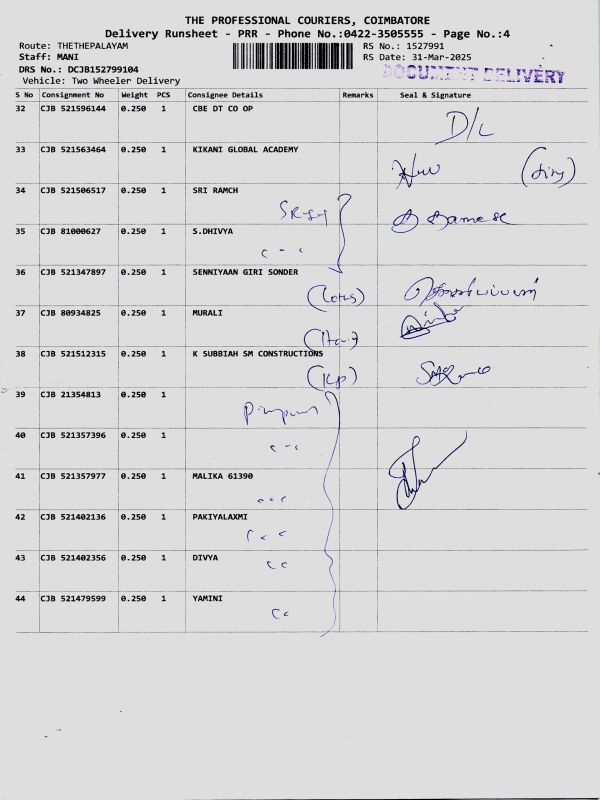 THE PROFESSIONAL COURIERS, COIMBATORE
Delivery Runsheet - PRR - Phone No.:0422-3505555 - Page No.:4
Route: THETHEPALAYAM RS No.: 1527991
Staff: MANI RS Date: 31-Mar-2025
DRS No.: DCJB152799104 DOCUMENT DELIVERY
Vehicle: Two Wheeler Delivery
S No Consignment No Weight PCS Consignee Details Remarks Seal & Signature
32 CJB 521596144 0.250 1 CBE DT CO OP
D/L
33 CJB 521563464 0.250 1 KIKANI GLOBAL ACADEMY
34 CJB 521506517 0.250 1 SRI RAMCH
35 CJB 81000627 0.250 1 S.DHIVYA
36 CJB 521347897 0.250 1 SENNIYAAN GIRI SONDER
(Lotus)
37 CJB 80934825 0.250 1 MURALI
38 CJB 521512315 0.250 1 K SUBBIAH SM CONSTRUCTIONS
(KP)
39 CJB 21354813 0.250 1
40 CJB 521357396 0.250 1
41 CJB 521357977 0.250 1 MALIKA 61390
42 CJB 521402136 0.250 1 PAKIYALAXMI
43 CJB 521402356 0.250 1 DIVYA
44 CJB 521479599 0.250 1 YAMINI